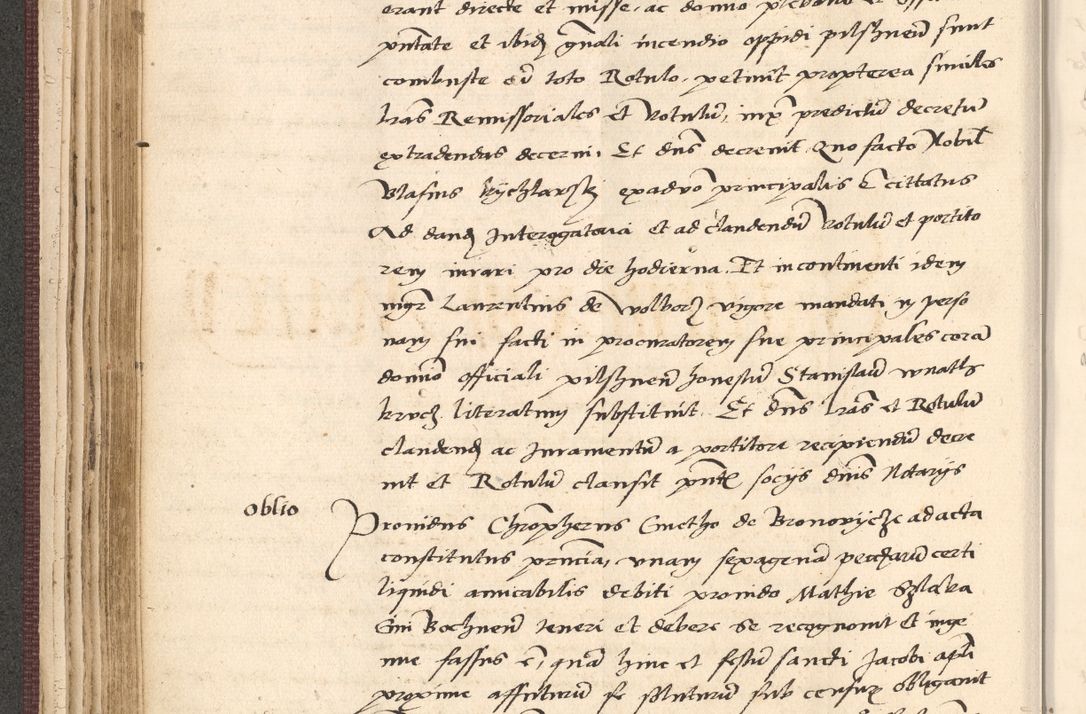 erant directe et misse, ac domno plebano et
pntate et ibidz gnali incendio oppidi pilsznen sunt
combuste cu toto Rotulo, petiuit propterea similes
lras Remissoriales et Rotulu, inx predictu decretu
extradendas decerni. Et dns decreuit. Quo facto Nobil
Blasius exaduo principalis e cittatus
Ad dandz Interogatoria et ad claudendu Rotulu et portito
rem iurari pro die hodierna. Et incontinenti idem
mgr Laurentius de wolborz vigore mandati in perso
nam sui facti in procuratorem sue principales cora
domno officiali pilsznen honestu Stanislau
literatum substituit. Et dns lras et Rotulu
claudendz ac Iuramentu a portitore recipiendu decre
uit et Rotulu clausit pntz socys dnis Notarys
Oblio
Prouidus Chropherus Cmetho de Bronowycze ad acta
constitutus princia, unam sexagena peccaru certi
liquidi amicabilis debiti prouido Mathie Szlaka
Ciui Bochnen teneri et debere se recognouit et inge
nue fassus e, qua hinc et festu sancti Jacobi apli
proxime affuturu se soluturu sub censuris obligauit